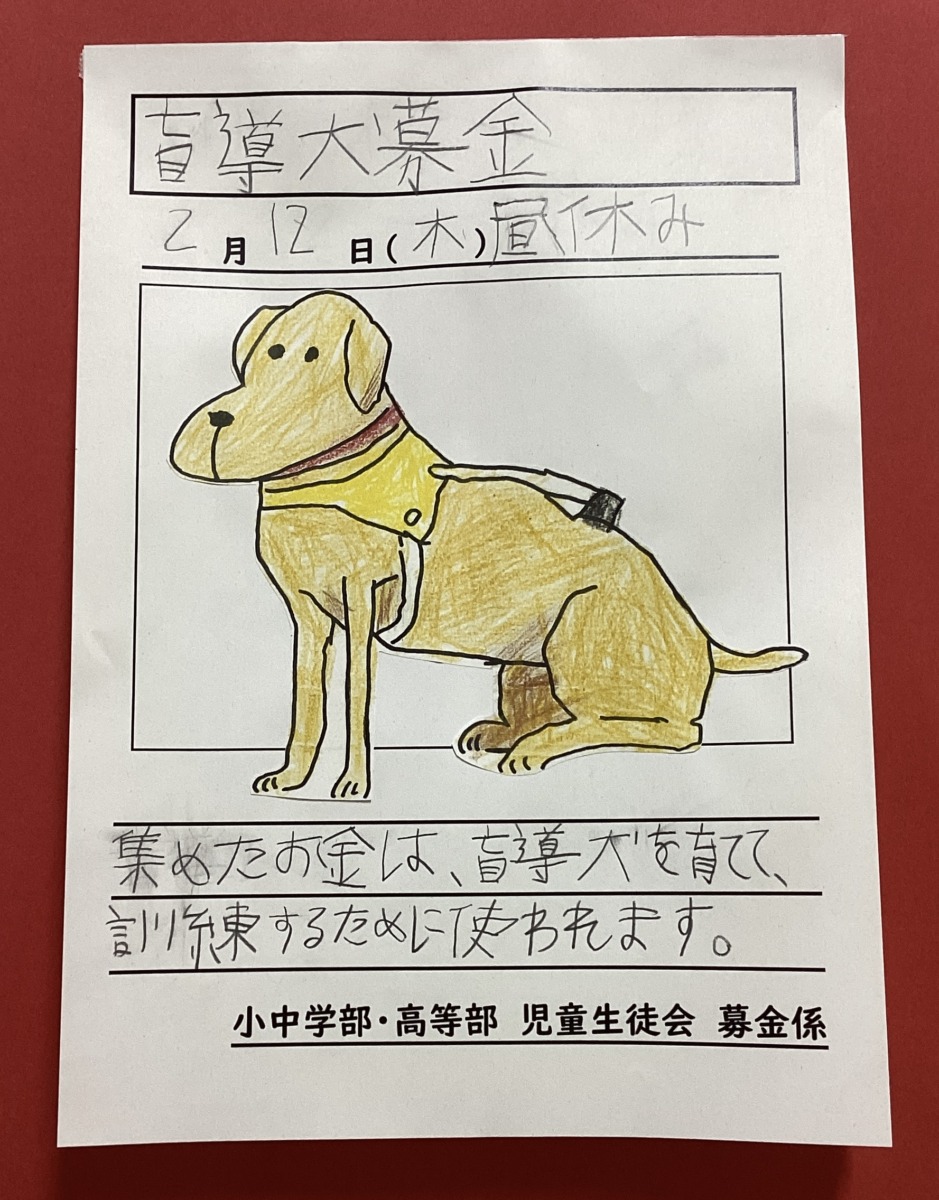 盲導犬募金
2月12日(木)昼休み
集めたお金は、盲導犬を育てて、
訓練するために使われます。
小中学部・高等部 児童生徒会 募金係